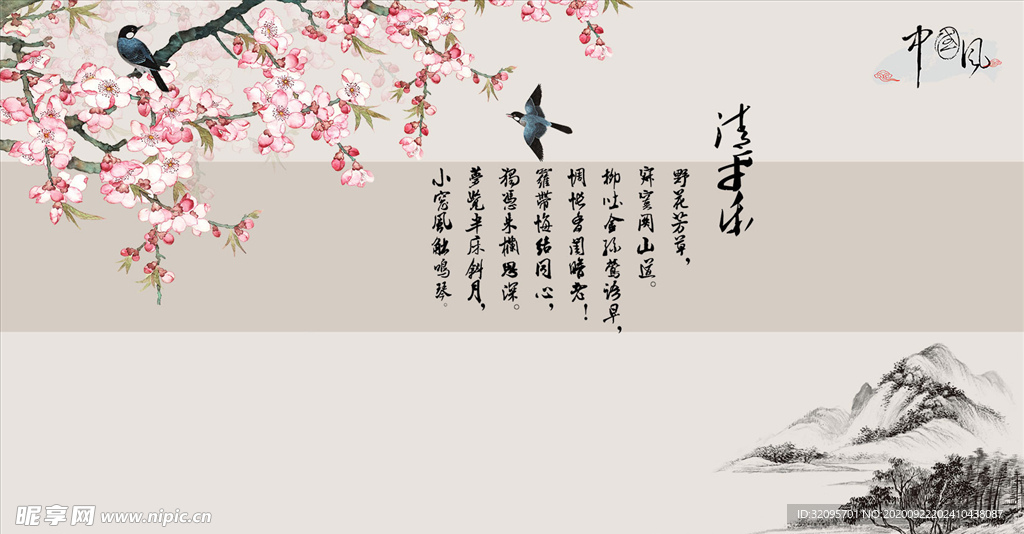 中国风
清平乐
野花芳草，
寂寞關山道。
柳吐金絲鶯語早，
惆悵香閨暗老！
羅帶悔結同心，
獨憑朱欄思深。
夢覺半床斜月，
小窗風觸鳴琴。
昵享网 www.nipic.cn
ID:32095701 NO:20200922202410438087